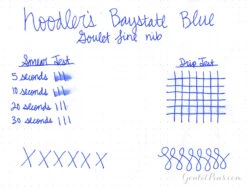 Noodler's Baystate Blue
Goulet fine nib
Smear Test
5 seconds
10 seconds
20 seconds
30 seconds
Drip Test
XXXXXX
GouletPens.com